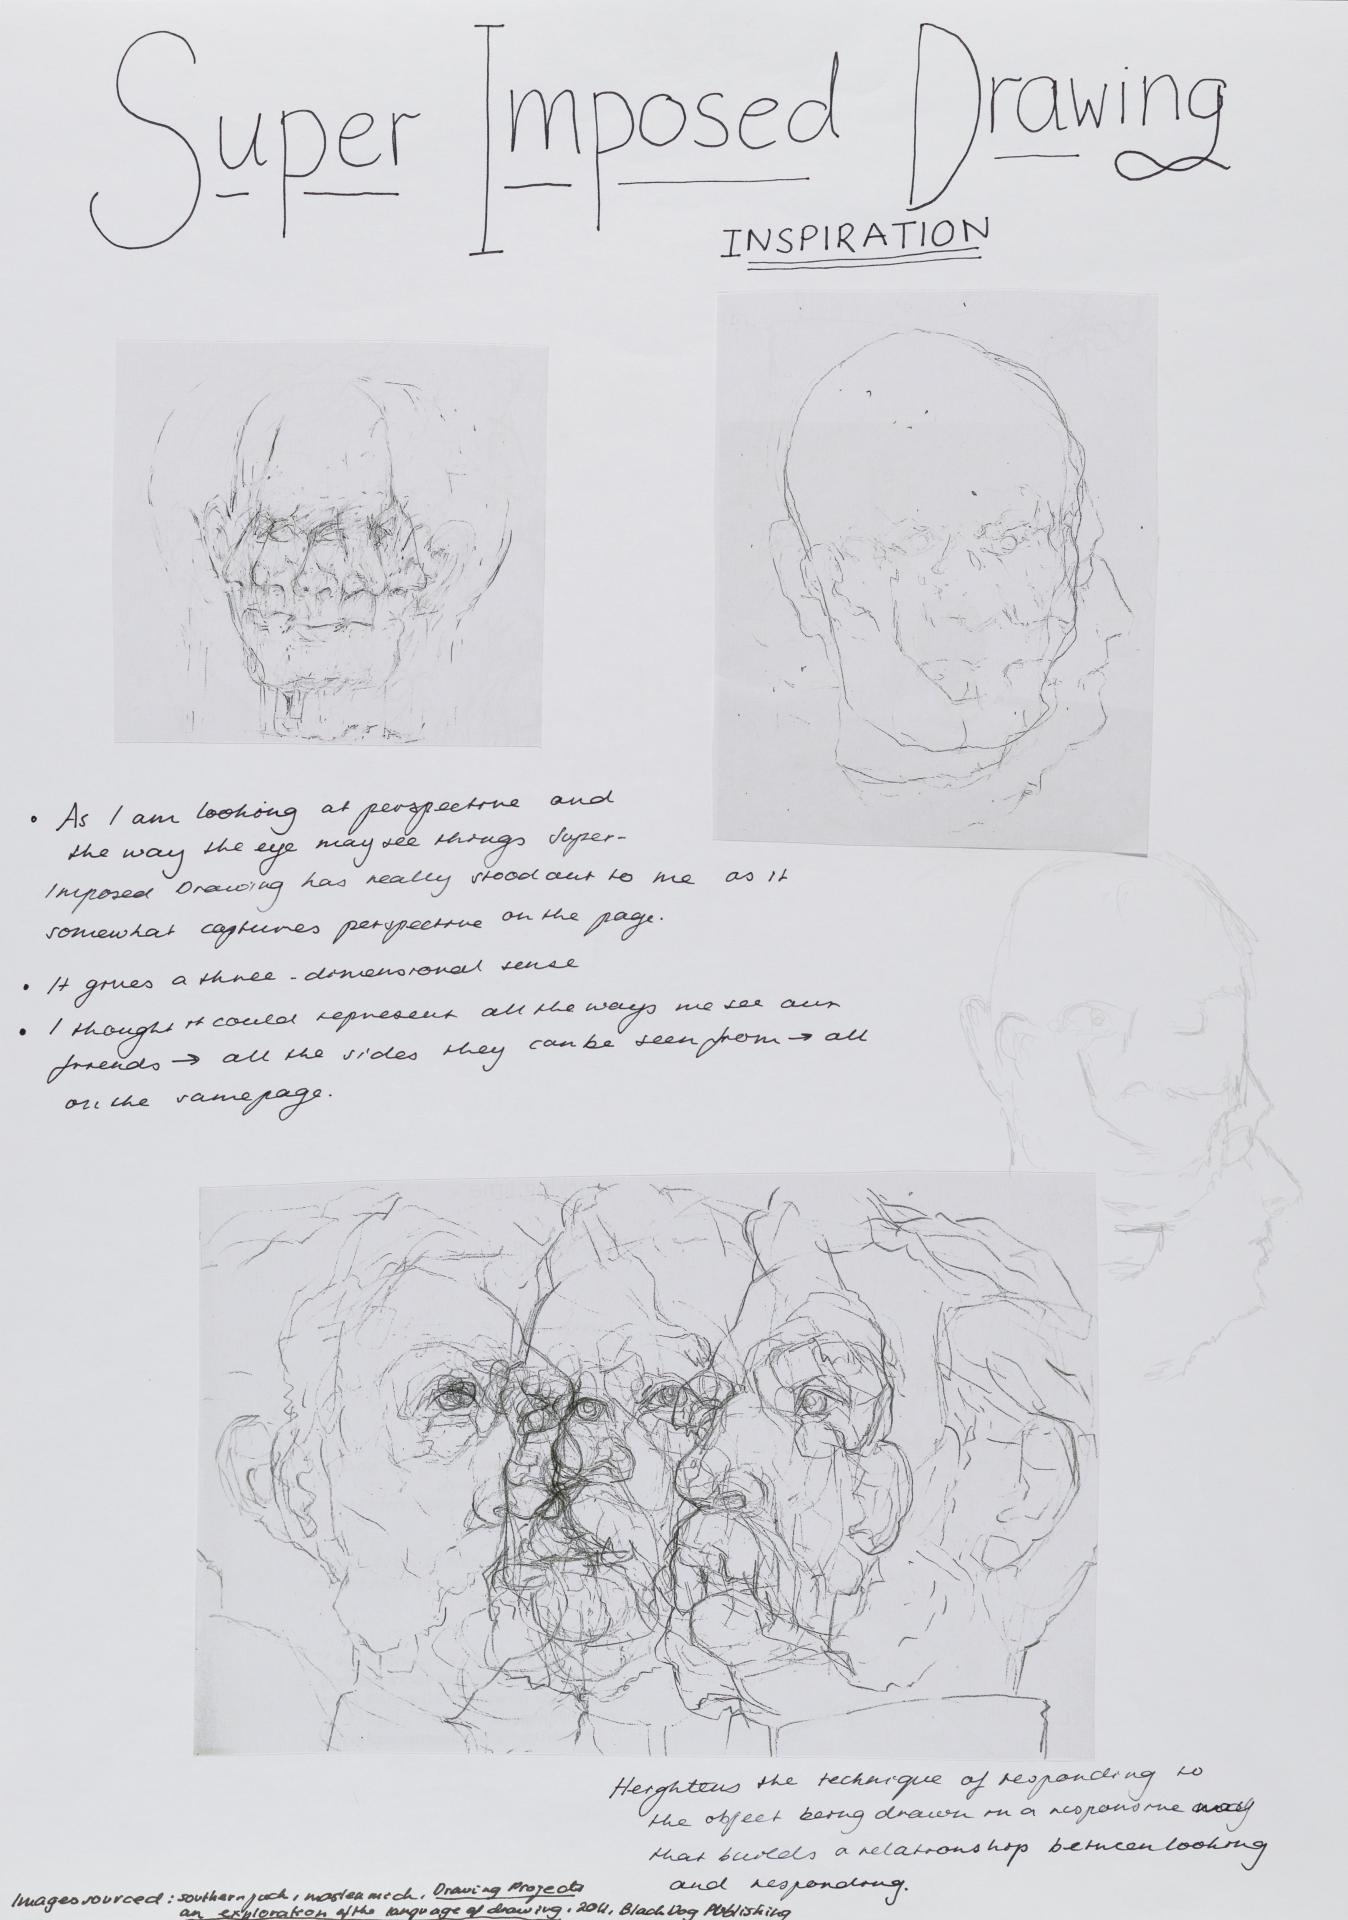 Super Imposed Drawing
INSPIRATION
• As I am looking at perspective and
the way the eye may see things Super-
Imposed Drawing has really stood out to me as it
somewhat captures perspective on the page.
• It gives a three-dimensional sense
• I thought it could represent all the ways we see our
friends → all the sides they can be seen from → all
on the same page.
Heightens the technique of responding to
the object being drawn in a responsive way
that builds a relationship between looking
and responding.
Images sourced: Drawing Projects
an exploration of the language of drawing, 2011, Black Dog Publishing